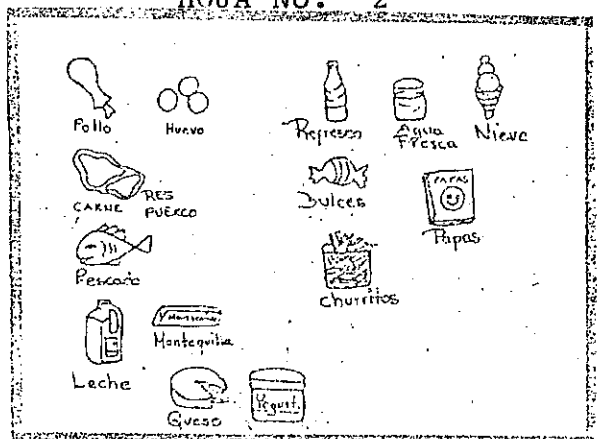 HOJA NO. 2
Pollo
Huevo
Refresco
Agua
Fresca
Nieve
CARNE
RES
PUERCO
Dulces
PAPAS
Papas
Pescado
Churritos
Leche
Mantequilla
Queso
Yogurt.